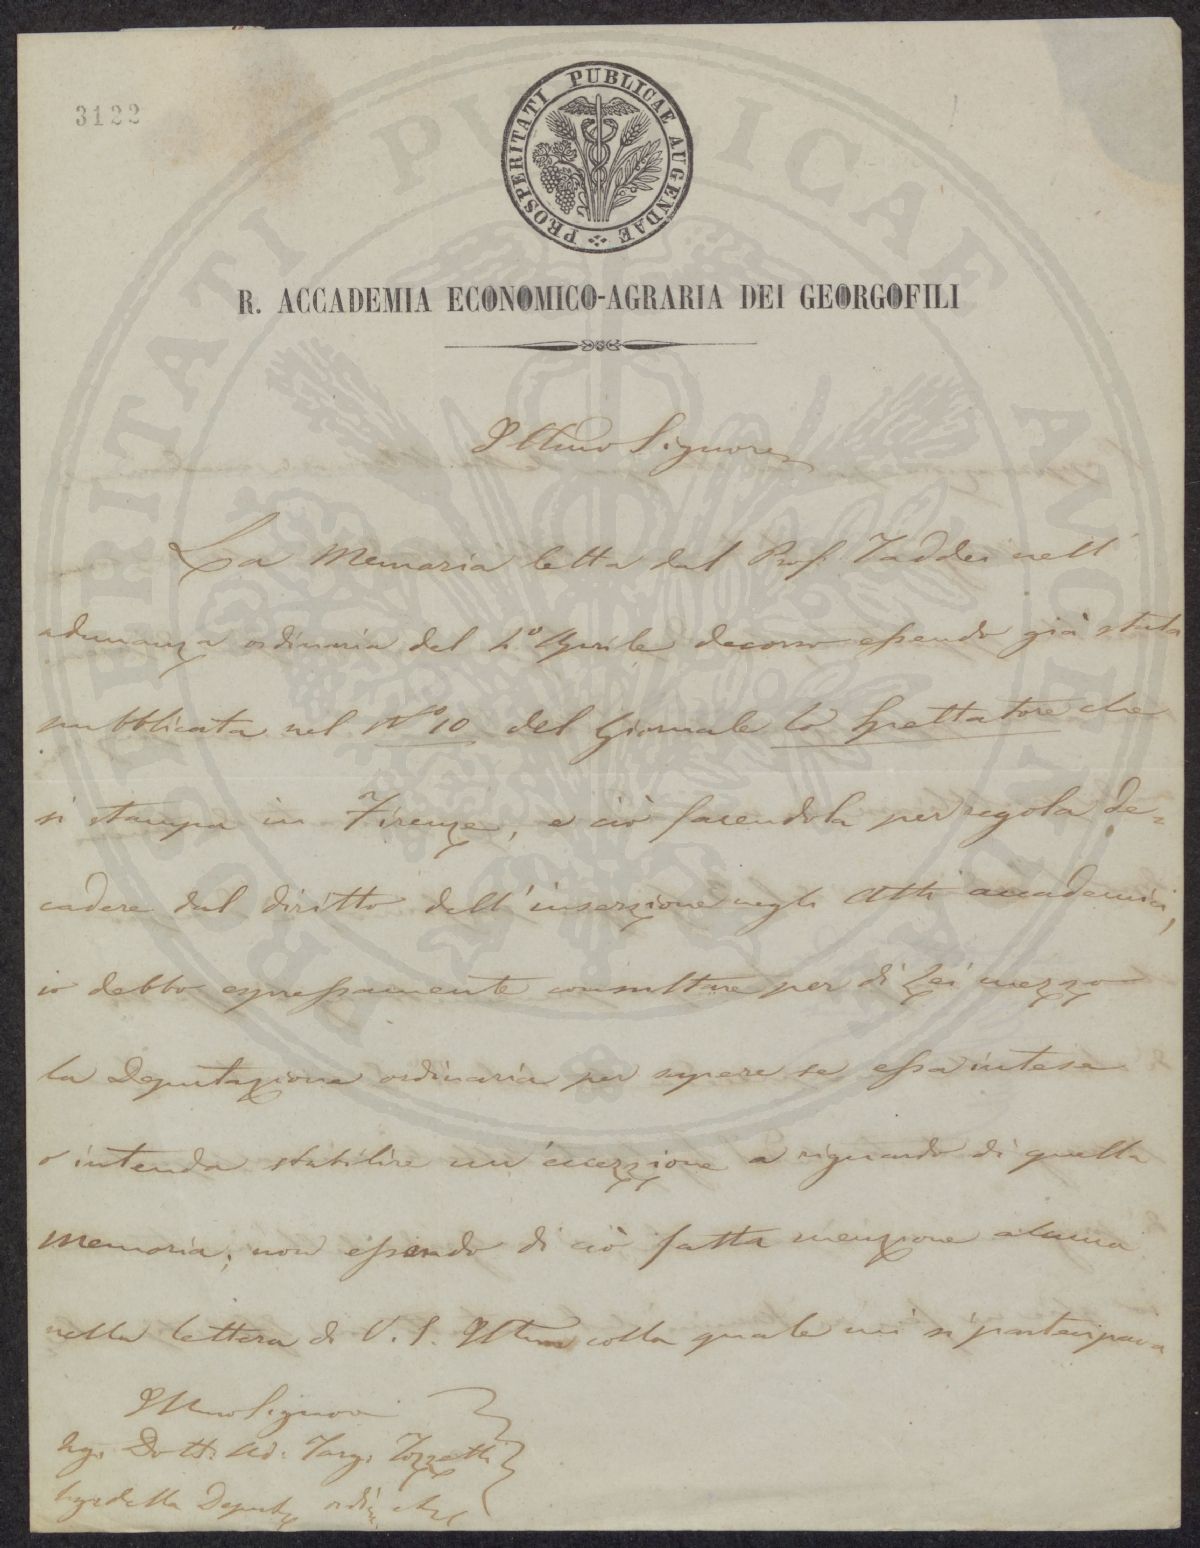 3122
PROSPERITATI PUBLICAE AUGENDAE
R. ACCADEMIA ECONOMICO-AGRARIA DEI GEORGOFILI
Illmo Signore
La Memoria letta dal Prof. Taddei nell'
adunanza ordinaria del 1º Aprile decorso essendo già stata
pubblicata nel Nº 10 del Giornale lo Spettatore che
si stampa in Firenze, e ciò facendola per regola de=
cadere dal diritto dell'inserzione negli Atti accademici,
io debbo espressamente consultare per di Lei mezzo
la Deputazione ordinaria per sapere se essa intese
o intenda stabilire un'eccezzione a riguardo di quella
memoria, non essendo di ciò fatta menzione alcuna
nella lettera di V. S. Illma colla quale mi si partecipava
Illmo Signor
Sig. Dott. Ad. Targ. Tozzetti
Seg. della Deput. ordin.